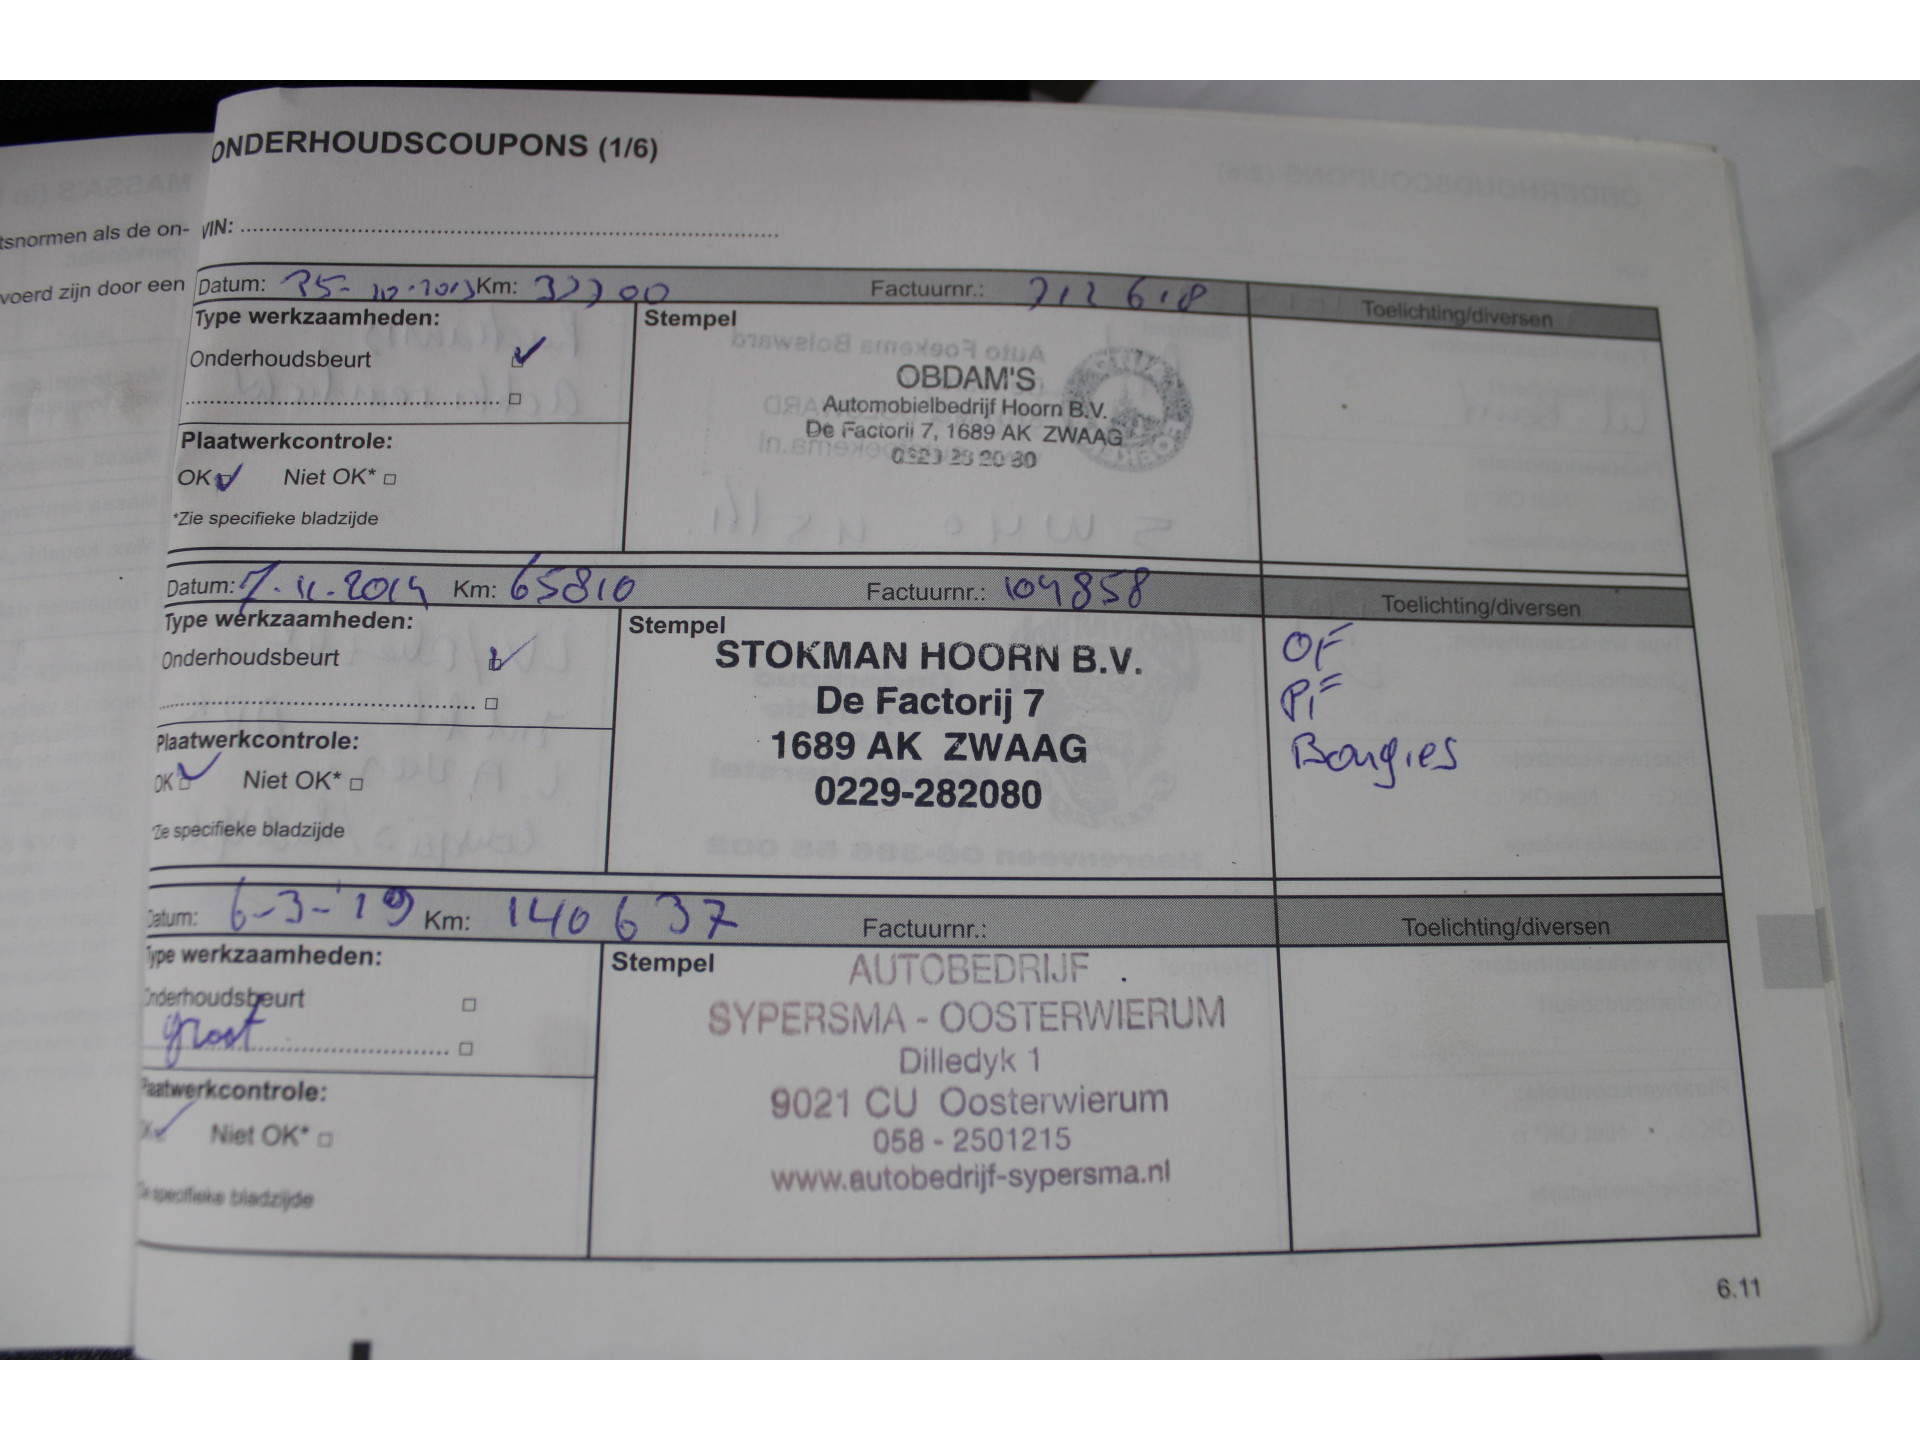 ONDERHOUDSCOUPONS (1/6)
tsnormen als de on-
VIN:
voerd zijn door een
Datum: Km: Factuurnr.: Toelichting/diversen
Type werkzaamheden: Stempel
Onderhoudsbeurt
OBDAM'S
Automobielbedrijf Hoorn B.V.
De Factorij 7, 1689 AK ZWAAG
Plaatwerkcontrole:
OK Niet OK*
*Zie specifieke bladzijde
Datum: 7-11-2014 Km: 65810 Factuurnr.: 104858 Toelichting/diversen
Type werkzaamheden: Stempel
Onderhoudsbeurt
STOKMAN HOORN B.V.
De Factorij 7
1689 AK ZWAAG
0229-282080
OF
PIF
Bougies
Plaatwerkcontrole:
OK Niet OK*
Zie specifieke bladzijde
Datum: 6-3-'19 Km: 140637 Factuurnr.: Toelichting/diversen
Type werkzaamheden: Stempel
Onderhoudsbeurt
groot
AUTOBEDRIJF
SYPERSMA - OOSTERWIERUM
Dilledyk 1
9021 CU Oosterwierum
058 - 2501215
www.autobedrijf-sypersma.nl
Plaatwerkcontrole:
OK Niet OK*
Zie specifieke bladzijde
6.11